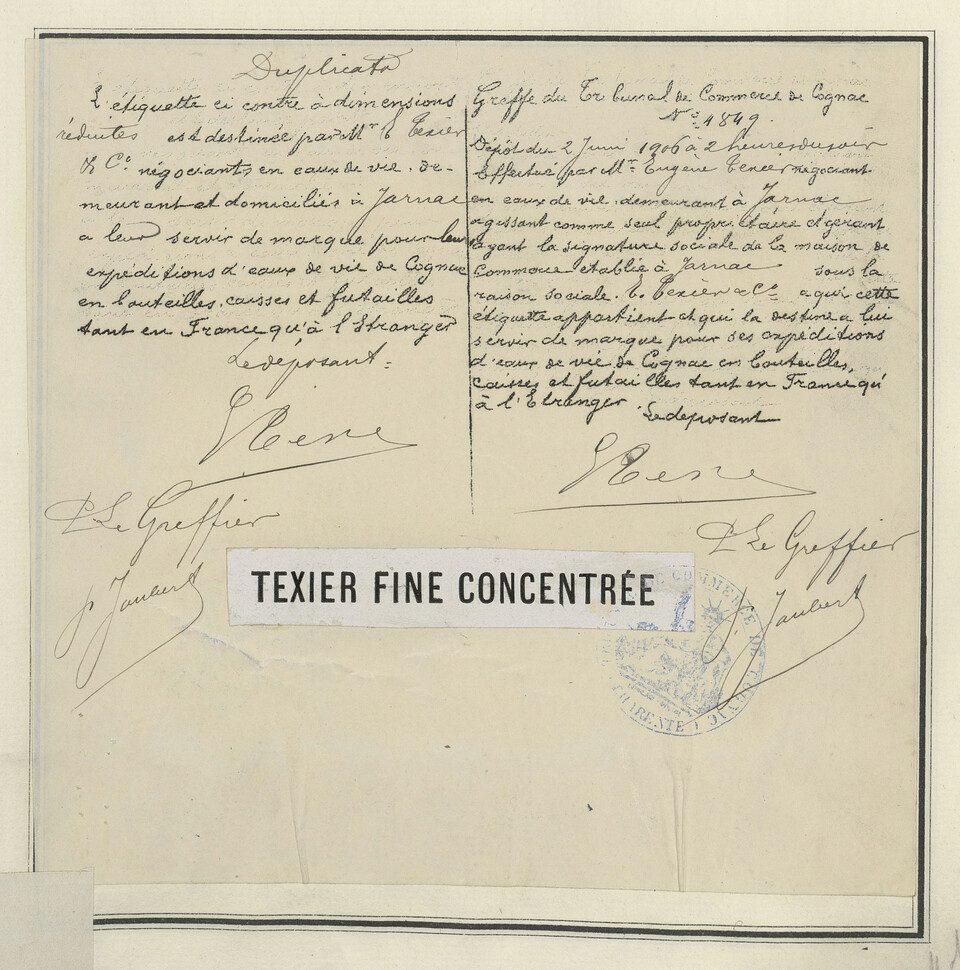 Duplicata
L'étiquette ci contre à dimensions
réduites est destinée par Mr E Texier
& Co négociants en eaux de vie, de-
meurant et domiciliés à Jarnac
a leur servir de marque pour leur
expéditions d'eaux de vie de Cognac
en bouteilles, caisses et futailles
tant en France qu'à l'Etranger
Le déposant:
P. Le Greffier
Joubert
Greffe du Tribunal de Commerce de Cognac
No 4849.
Dépôt du 2 Juin 1906 à 2 heures du soir
Effectué par Mr Eugène Texier négociant
en eaux de vie, demeurant à Jarnac
agissant comme seul propriétaire et gérant
ayant la signature sociale de la maison de
Commerce établie à Jarnac sous la
raison sociale. E. Texier & Co a qui cette
étiquette appartient et qui la destine a lui
servir de marque pour ses expéditions
d'eaux de vie de Cognac en bouteilles,
caisses et futailles tant en France qu'
à l'Etranger
Le deposant
P. Le Greffier
Joubert
TEXIER FINE CONCENTRÉE
COMMERCE DE COGNAC
CHARENTE